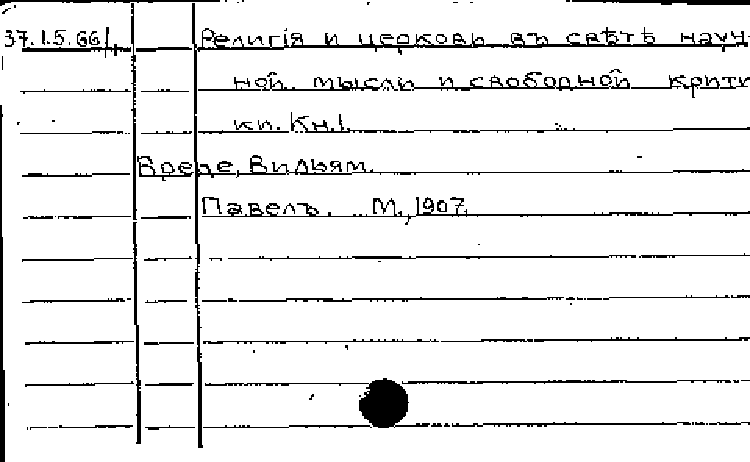 37.1.5.66/1, Религія и церковь въ свѣтѣ науч-
ной мысли и свободной крити-
ки. Кн.1.
Вреде, Вильям.
Павелъ. М.,1907.